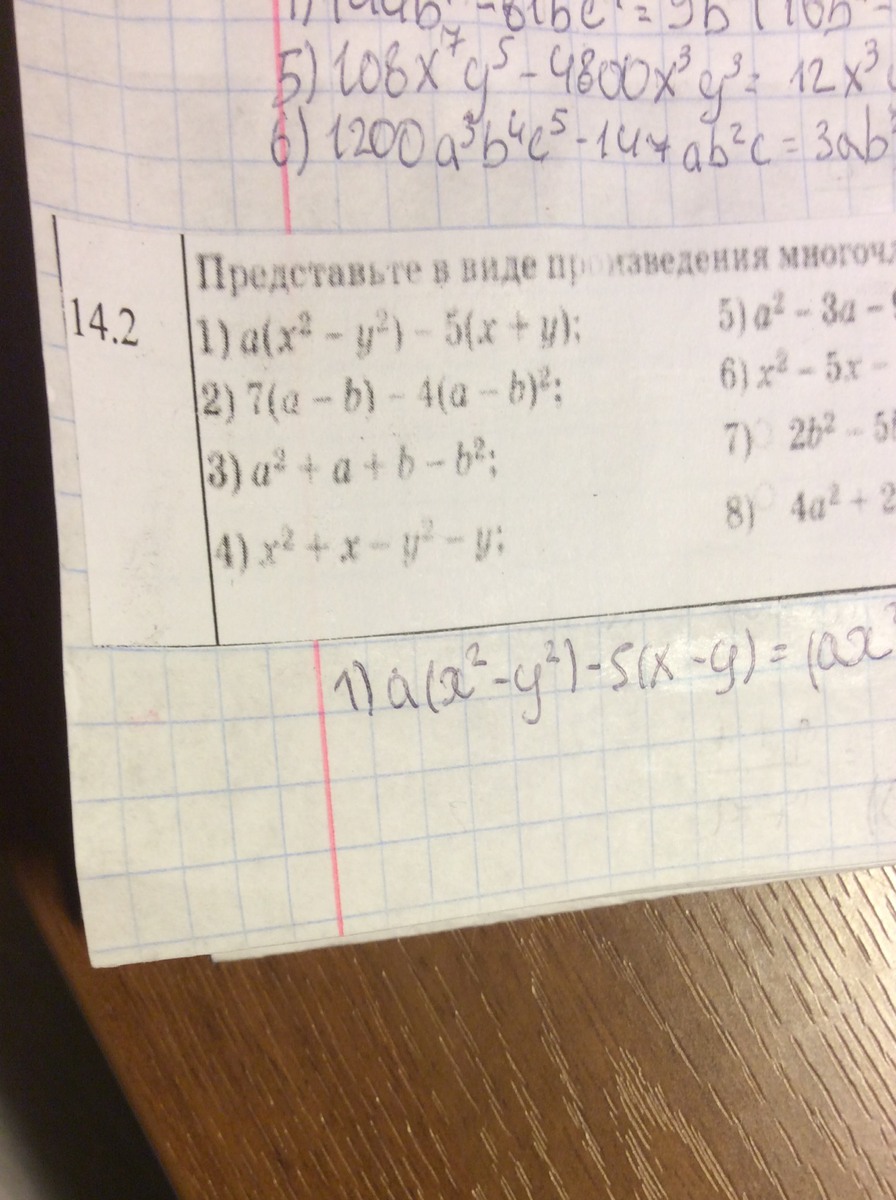 5) 108x⁷y⁵ - 4800x³y³ = 12x³
6) 1200a³b⁴c⁵ - 147ab²c = 3ab
14.2
Представьте в виде произведения многочл
1) a(x² – y²) – 5(x + y);
2) 7(a – b) – 4(a – b)²;
3) a² + a + b – b²;
4) x² + x – y² – y;
5) a² – 3a –
6) x² – 5x –
7) 2b² – 5
8) 4a² + 2
1) a(x² - y²) - 5(x - y) = (ax